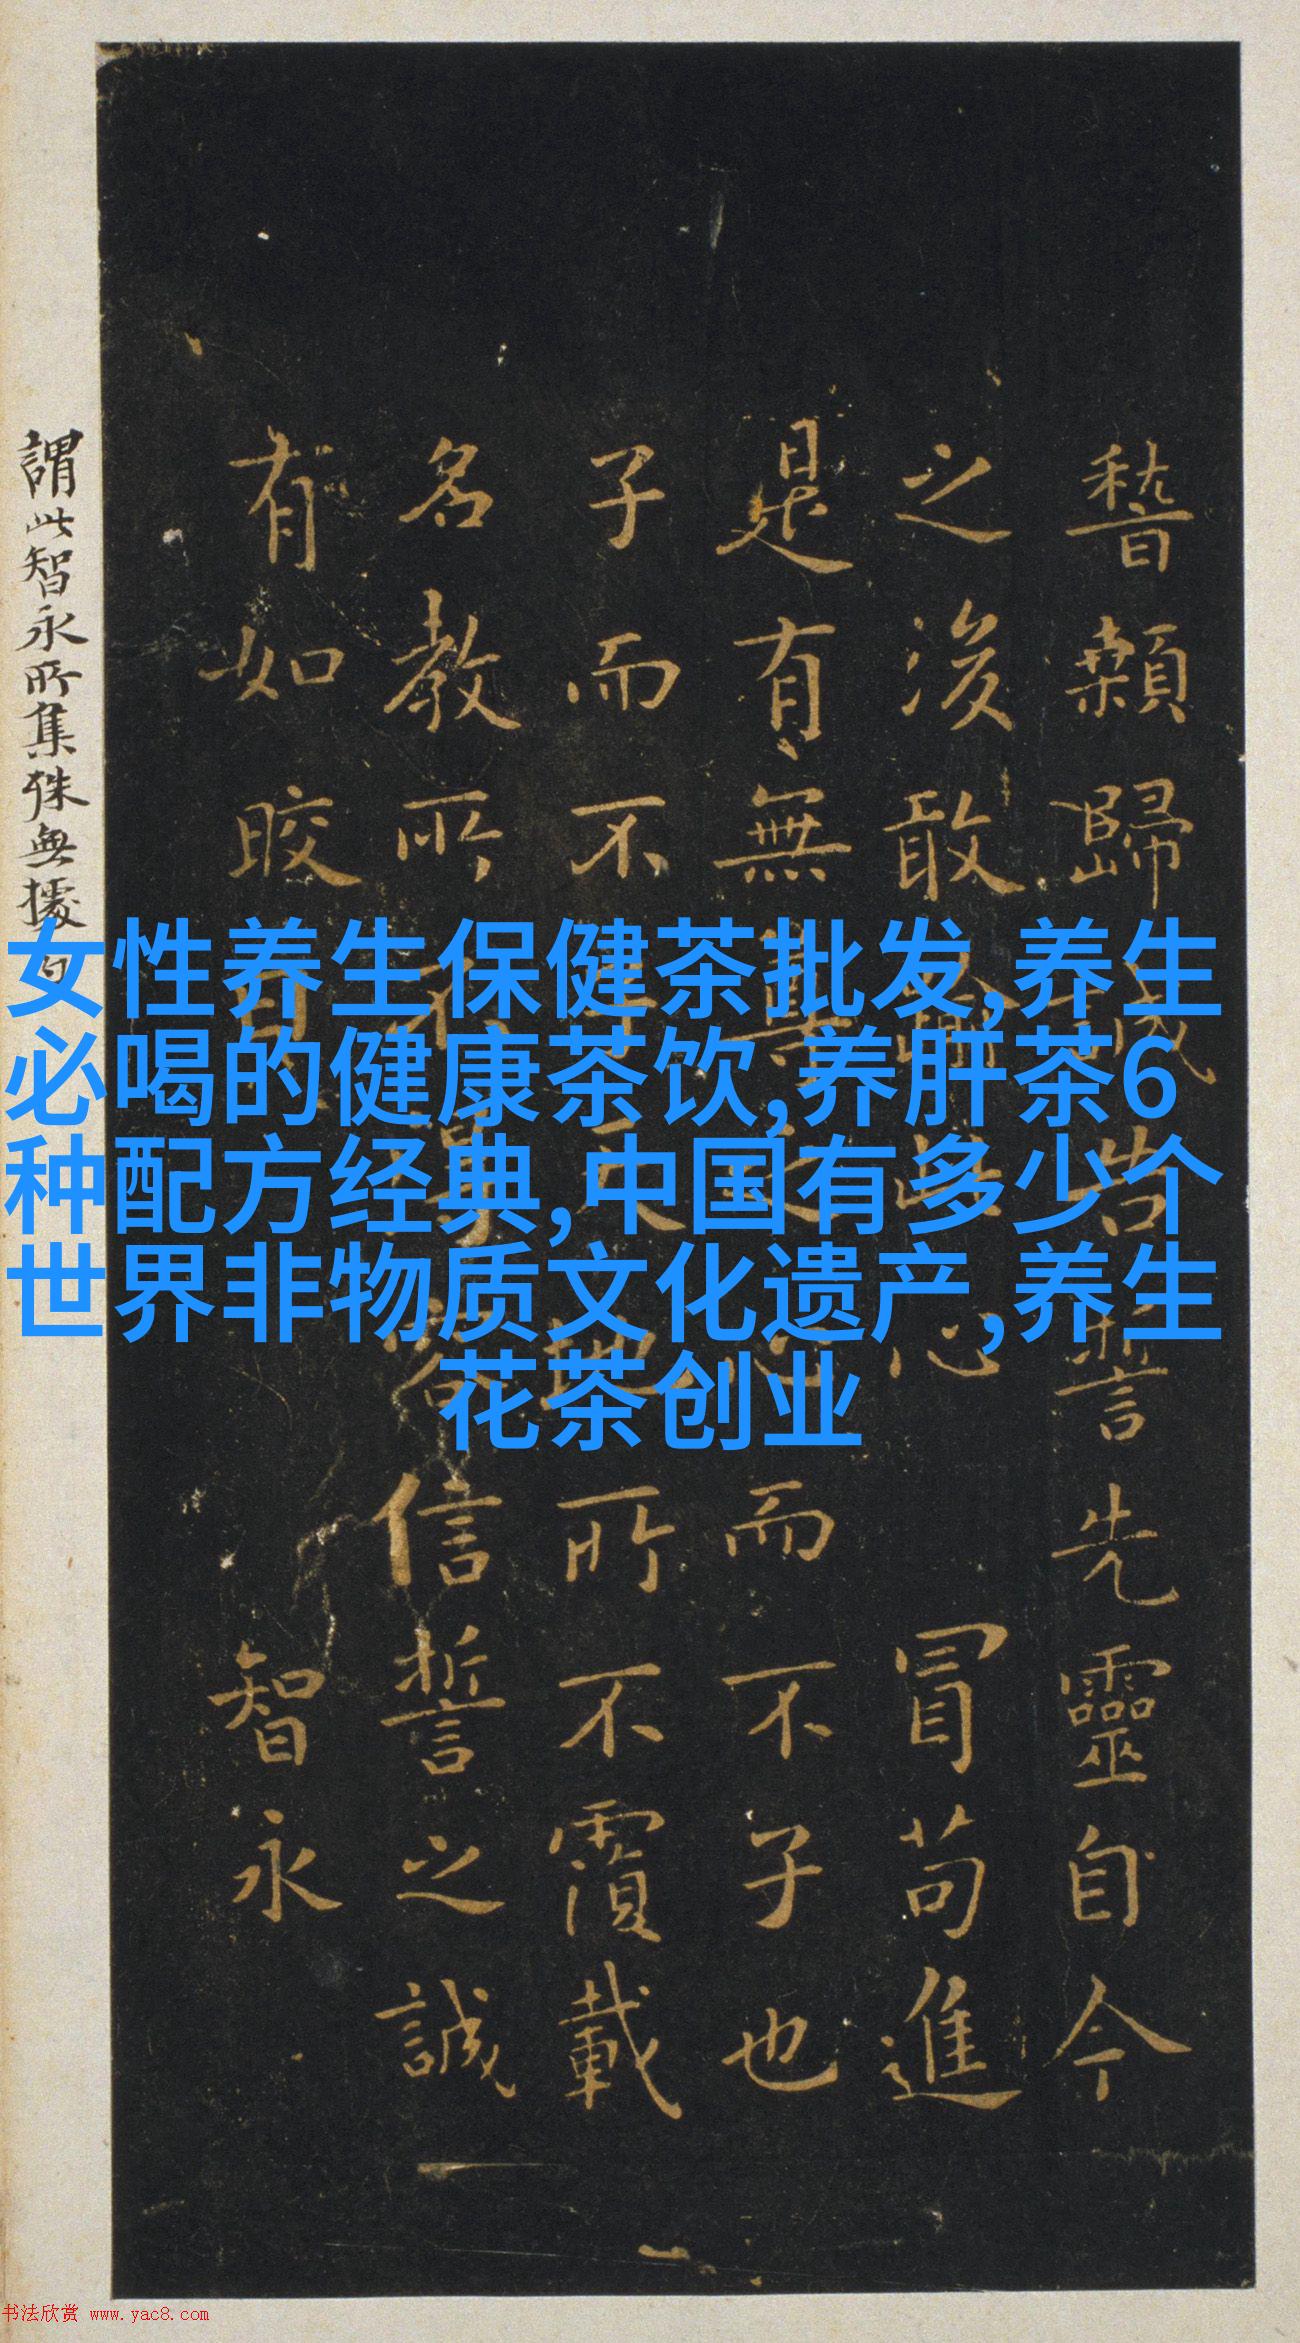 稽顙歸誠告誓先靈自今
之後敢渝此心冒苟進
是有無之心而不子也
子而不子天地所不覆載
名教所不得容信誓之誠
有如皎日
智永
謂此智永所集殊無據
女性养生保健茶批发,养生
必喝的健康茶饮,养肝茶6
种配方经典,中国有多少个
世界非物质文化遗产,养生
花茶创业
书法欣赏 www.yac8.com